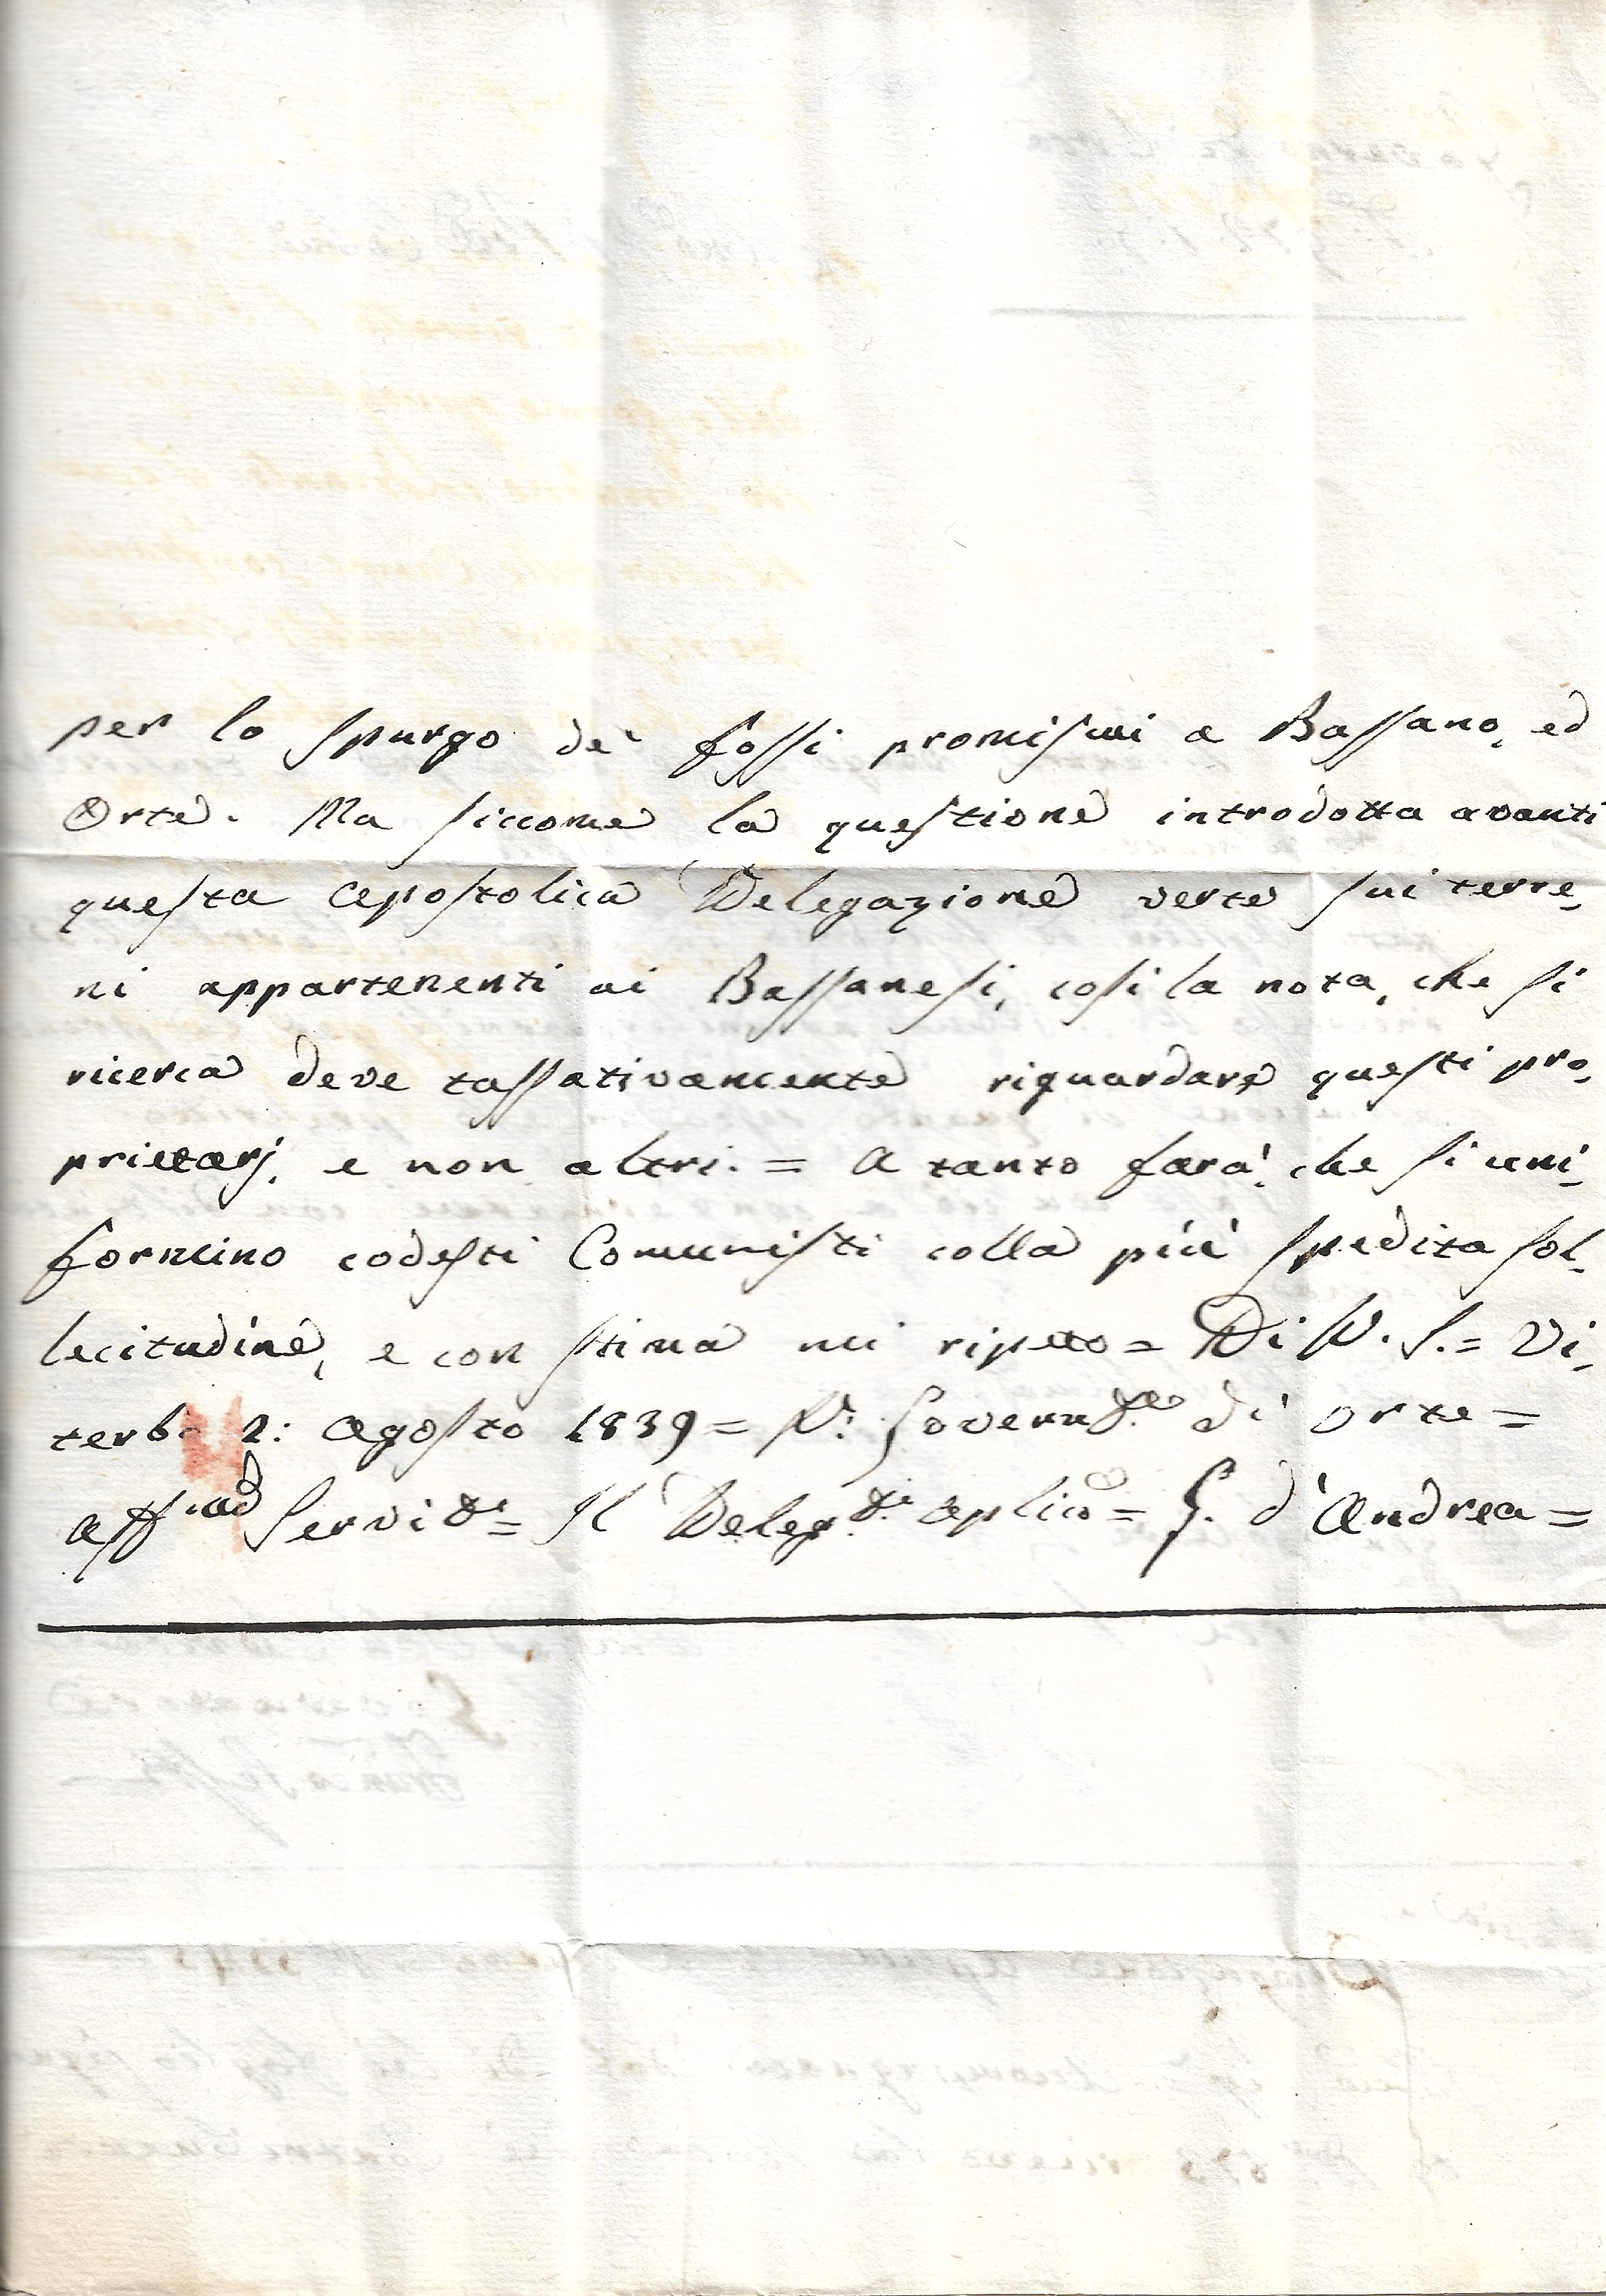 per lo spurgo de' fossi promiscui a Bassano, ed
Orte. Ma siccome la questione introdotta avanti
questa Apostolica Delegazione verte sui terre-
ni appartenenti ai Bassanesi, così la nota, che si
ricerca deve tassativamente riguardare questi pro-
prietarj, e non altri. = A tanto farà, che si uni-
formino codesti Comunisti colla più spedita sol-
lecitudine, e con stima mi ripeto = Di V. S. = Vi-
terbo 2: Agosto 1839 = V. Govern.re di Orte =
aff.mo Servi.re = Il Deleg.to aplico = G. d'Andrea =